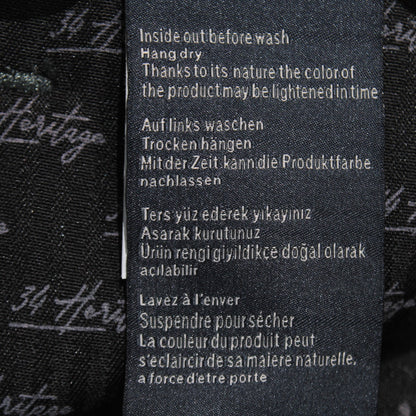 Inside out before wash
Hang dry
Thanks to its nature the color of
the product may be lightened in time
Auf links waschen
Trocken hängen
Mit der Zeit kann die Produktfarbe
nachlassen
Ters yüz ederek yıkayınız
Asarak kurutunuz
Ürün rengi giyildikce doğal olarak
açılabilir
Lavez à l'enver
Suspendre pour sécher
La couleur du produit peut
s'eclaircir de sa maiere naturelle,
a force d'etre porte
34 Heritage
Heritage
34 Heritage
Heritage
34